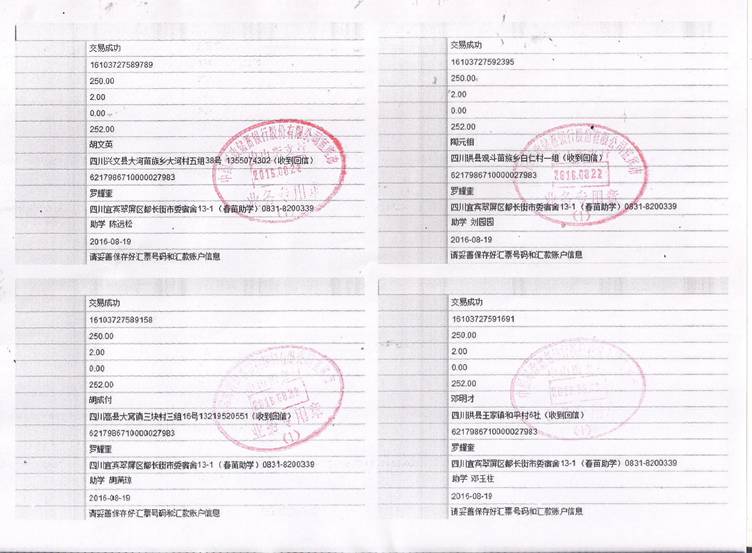 交易成功
16103727589789
250.00
2.00
0.00
252.00
胡文英
四川兴文县大河苗族乡大河村五组38号 1355074302（收到回信）
6217986710000027983
罗耀奎
四川宜宾翠屏区都长街市委宿舍13-1（春苗助学）0831-8200339
助学 陈远松
2016-08-19
请妥善保存好汇票号码和汇款账户信息
2016.08.22
业务专用章
(1)
交易成功
16103727592395
250.00
2.00
0.00
252.00
陶元银
四川珙县观斗苗族乡白仁村一组（收到回信）
6217986710000027983
罗耀奎
四川宜宾翠屏区都长街市委宿舍13-1（春苗助学）0831-8200339
助学 刘园园
2016-08-19
请妥善保存好汇票号码和汇款账户信息
2016.08.22
业务专用章
(1)
交易成功
16103727589158
250.00
2.00
0.00
252.00
胡成付
四川高县大窝镇三块村三组16号13219520551（收到回信）
6217986710000027983
罗耀奎
四川宜宾翠屏区都长街市委宿舍13-1（春苗助学）0831-8200339
助学 胡美琼
2016-08-19
请妥善保存好汇票号码和汇款账户信息
业务专用章
(1)
交易成功
16103727591691
250.00
2.00
0.00
252.00
邓明才
四川珙县王家镇和平村6社（收到回信）
6217986710000027983
罗耀奎
四川宜宾翠屏区都长街市委宿舍13-1（春苗助学）0831-8200339
助学 邓玉柱
2016-08-19
请妥善保存好汇票号码和汇款账户信息
(1)